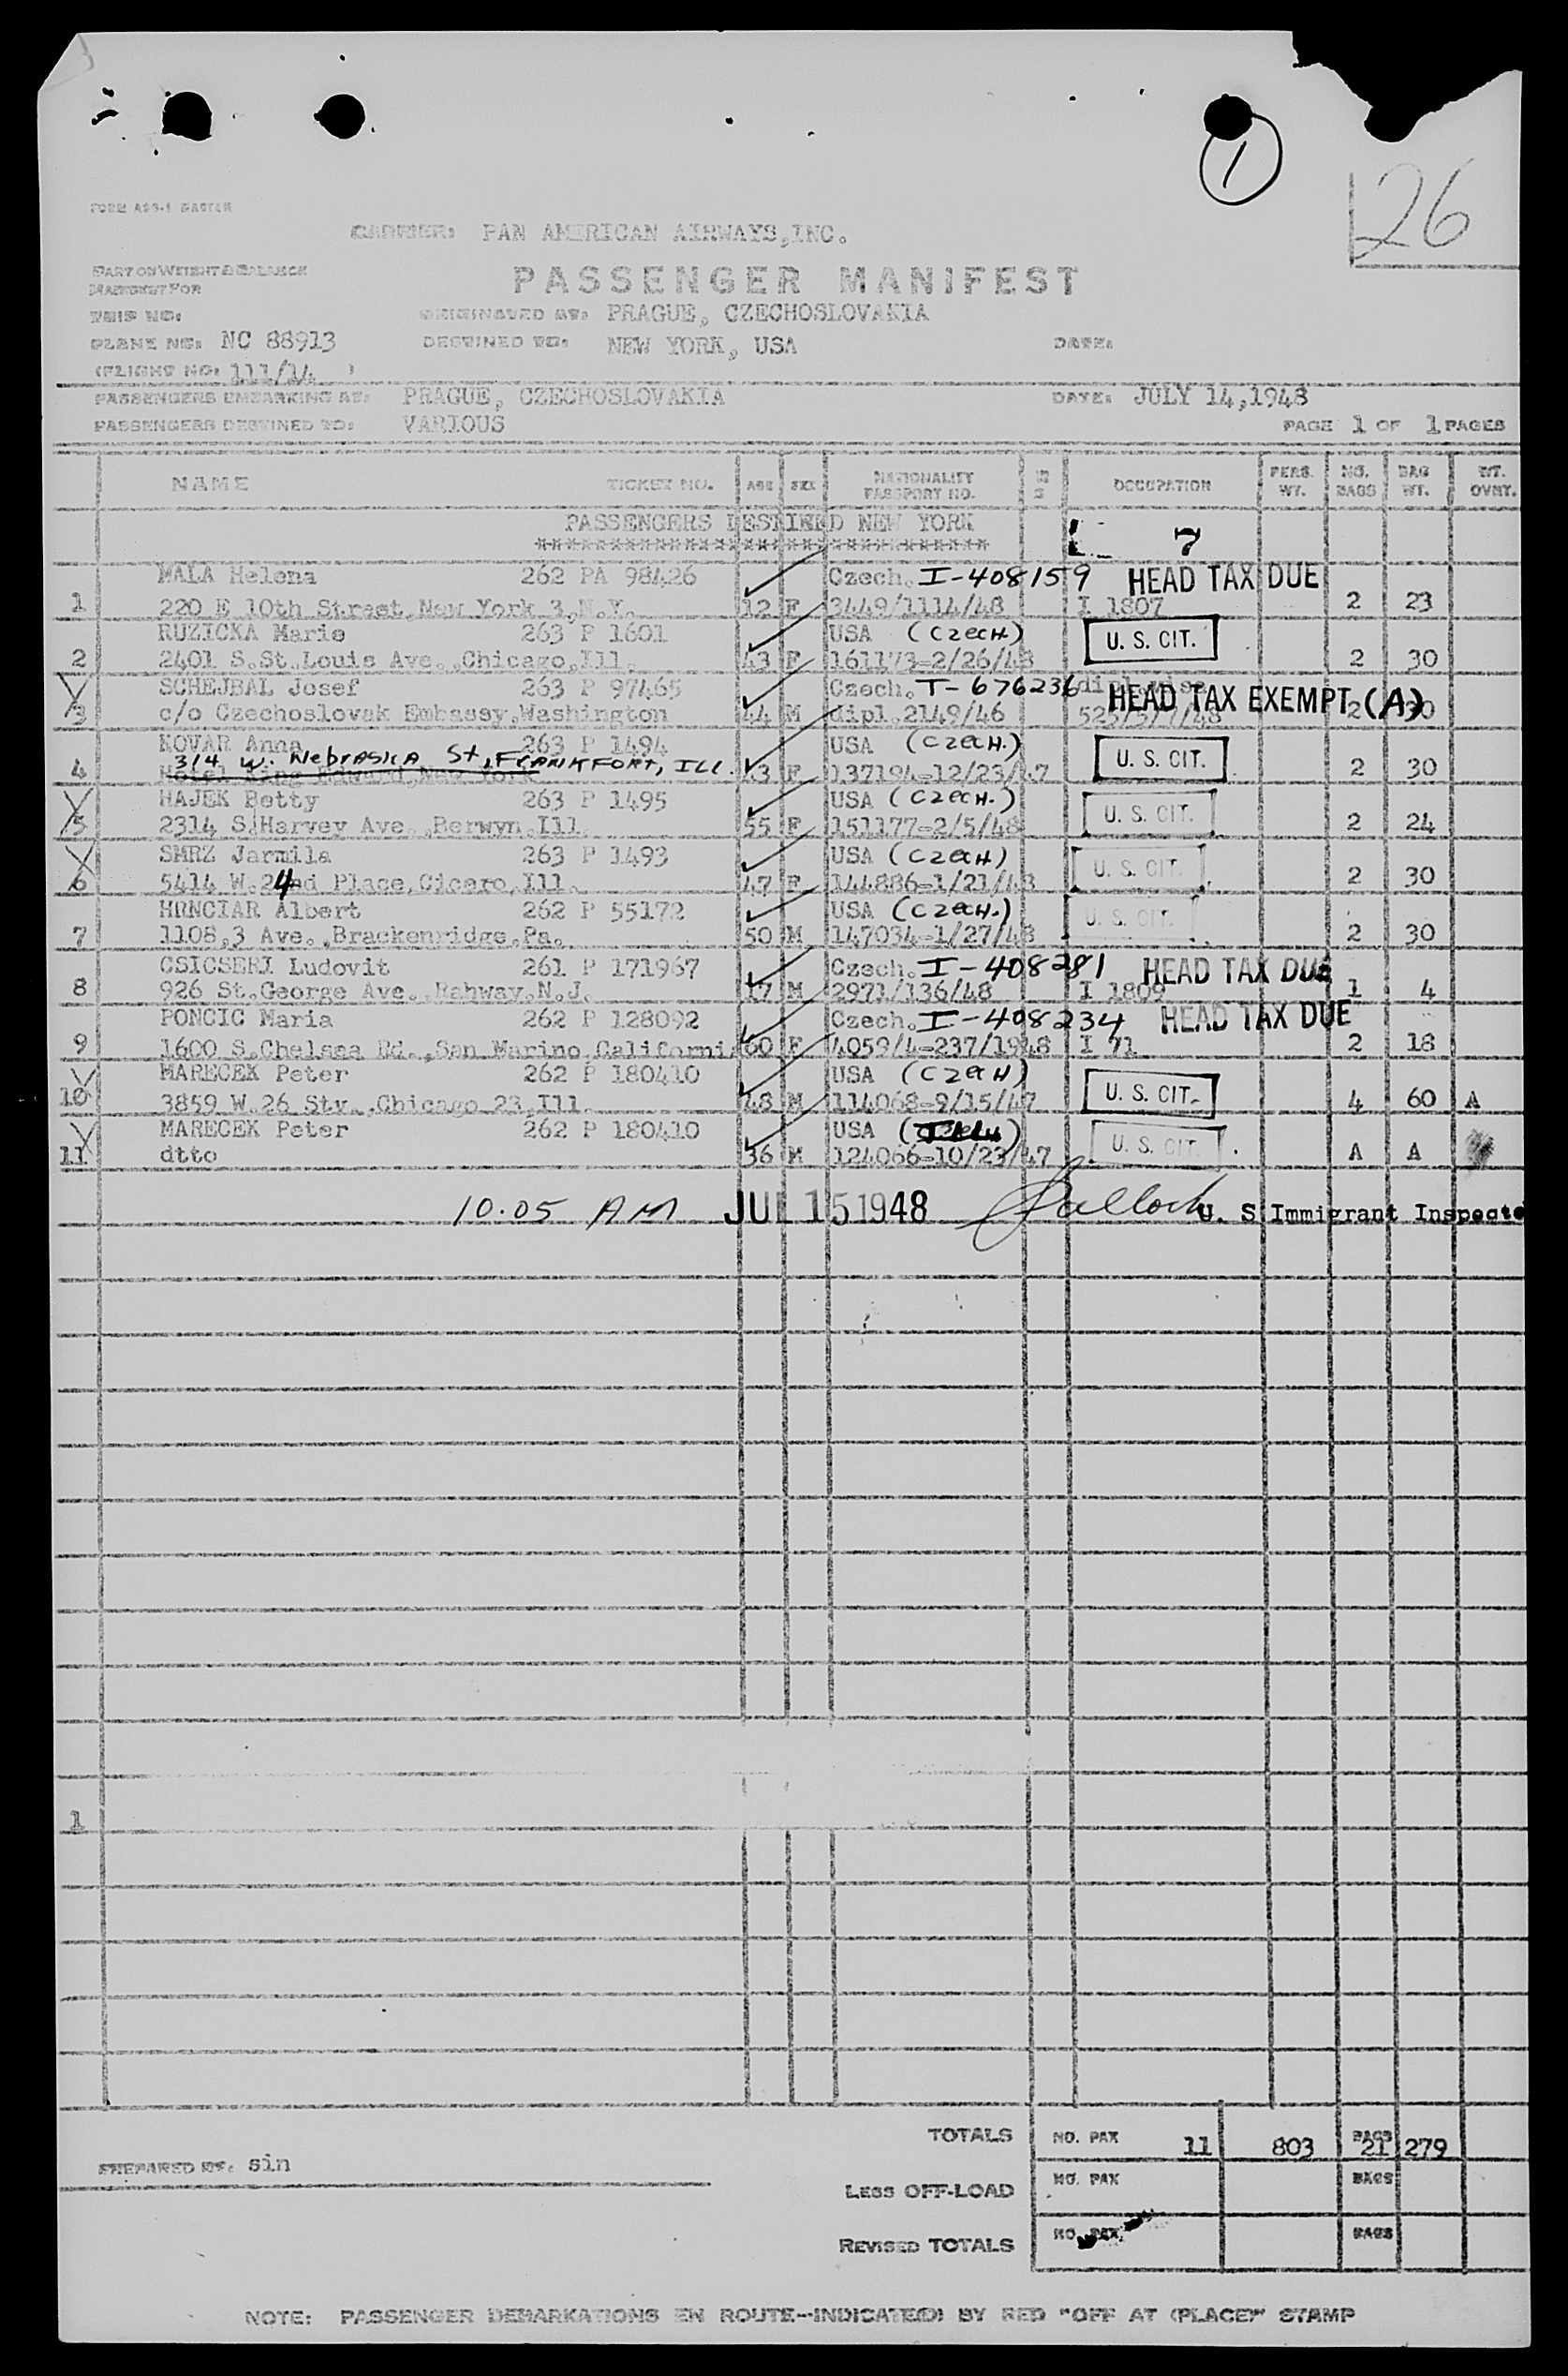 1
26
FORM
CARRIER: PAN AMERICAN AIRWAYS,INC.
PART ON WEIGHT & BALANCE
MANIFEST FOR
PASSENGER MANIFEST
TRIP NO:
ORIGINATED AT: PRAGUE, CZECHOSLOVAKIA
PLANE NO: NC 88913
DESTINED TO: NEW YORK, USA
DATE:
(FLIGHT NO: 111/14 )
PASSENGERS EMBARKING AT: PRAGUE, CZECHOSLOVAKIA DATE: JULY 14,1948
PASSENGERS DESTINED TO: VARIOUS PAGE 1 OF 1 PAGES
NAME TICKET NO. AGE SEX NATIONALITY PASSPORT NO. OCCUPATION PERS. WT. NO. BAGS BAG WT. WT. OVWT.
PASSENGERS DESTINED NEW YORK
******************************* 7
MALA Helena 262 PA 98426 Czech. I-408159 HEAD TAX DUE
1 220 E 10th Street,New York 3,N.Y. 12 F 3449/1114/48 I 1807 2 23
RUZICKA Marie 263 P 1601 USA (CzecH) U. S. CIT.
2 2401 S.St.Louis Ave.,Chicago,Ill. 43 F 161173-2/26/48 2 30
SCHEJBAL Josef 263 P 97465 Czech. T-676236 HEAD TAX EXEMPT (A)
3 c/o Czechoslovak Embassy,Washington 44 M dipl.2149/46 2 30
KOVAR Anna 263 P 1494 USA (CzecH.) U. S. CIT.
314 W. Nebraska St, FRANKFORT, ILL.
4 Hotel King Edward,New York 43 F 137194-12/23/47 2 30
HAJEK Betty 263 P 1495 USA (CzecH.) U. S. CIT.
5 2314 S.Harvey Ave.,Berwyn,Ill. 55 F 151177-2/5/48 2 24
SMRZ Jarmila 263 P 1493 USA (CzecH) U. S. CIT.
6 5414 W.24 Place,Cicero,Ill. 47 F 144886-1/21/48 2 30
HRNCIAR Albert 262 P 55172 USA (CzecH.) U. S. CIT.
7 1108,3 Ave.,Brackenridge,Pa. 50 M 147034-1/27/48 2 30
CSICSERI Ludovit 261 P 171967 Czech. I-408281 HEAD TAX DUE
8 926 St.George Ave.,Rahway,N.J. 17 M 2971/136/48 I 1809 1 4
PONCIC Maria 262 P 128092 Czech. I-408234 HEAD TAX DUE
9 1600 S.Chelsea Rd.,San Marino,Californi 60 F 4059/4-237/1948 I 71 2 18
MARECEK Peter 262 P 180410 USA (CzecH) U. S. CIT.
10 3859 W.26 Str.,Chicago 23,Ill. 48 M 114068-9/15/47 4 60 A
MARECEK Peter 262 P 180410 USA U. S. CIT.
11 dtto 36 M 124066-10/23/47 A A
10.05 AM JUL 15 1948 U. S Immigrant Inspecto
1
TOTALS NO. PAX 11 803 BAGS 21 279
PREPARED BY: sin
LESS OFF-LOAD NO. PAX BAGS
REVISED TOTALS NO. PAX BAGS
NOTE: PASSENGER DEBARKATIONS EN ROUTE--INDICATE(D) BY RED "OFF AT (PLACE)" STAMP